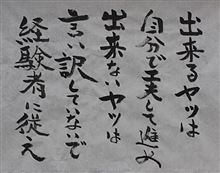 出来るヤツは
自分で工夫して進め
出来ないヤツは
言い訳していないで
経験者に従え